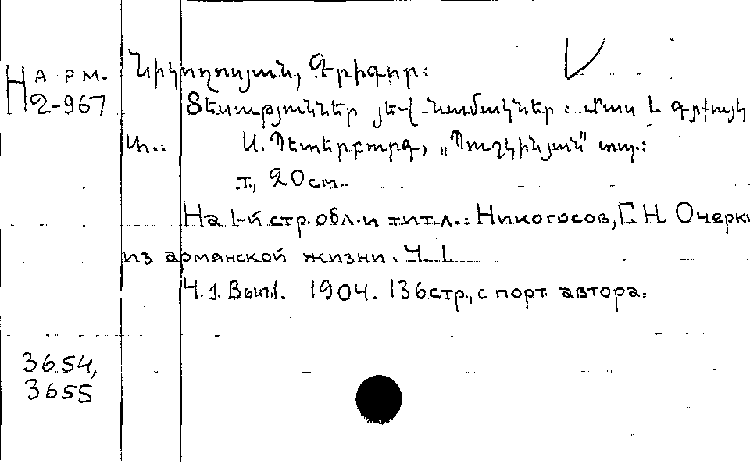 Н АРМ. Նիկողոսյան, Գրիգոր:
2-967 Տեսություններ յեվ նամակներ: Մաս 1 գրքույկ
Ս. Պետերբուրգ, „Պուշկինյան" տպ.:
т., 20 см.
На 1-й стр. обл. и тит. л.: Никогосов, Г. Н. Очерки
из армянской жизни. Ч. 1
Ч. 1. Вып. 1. 1904. 136 стр., с порт. автора.
3654,
3655